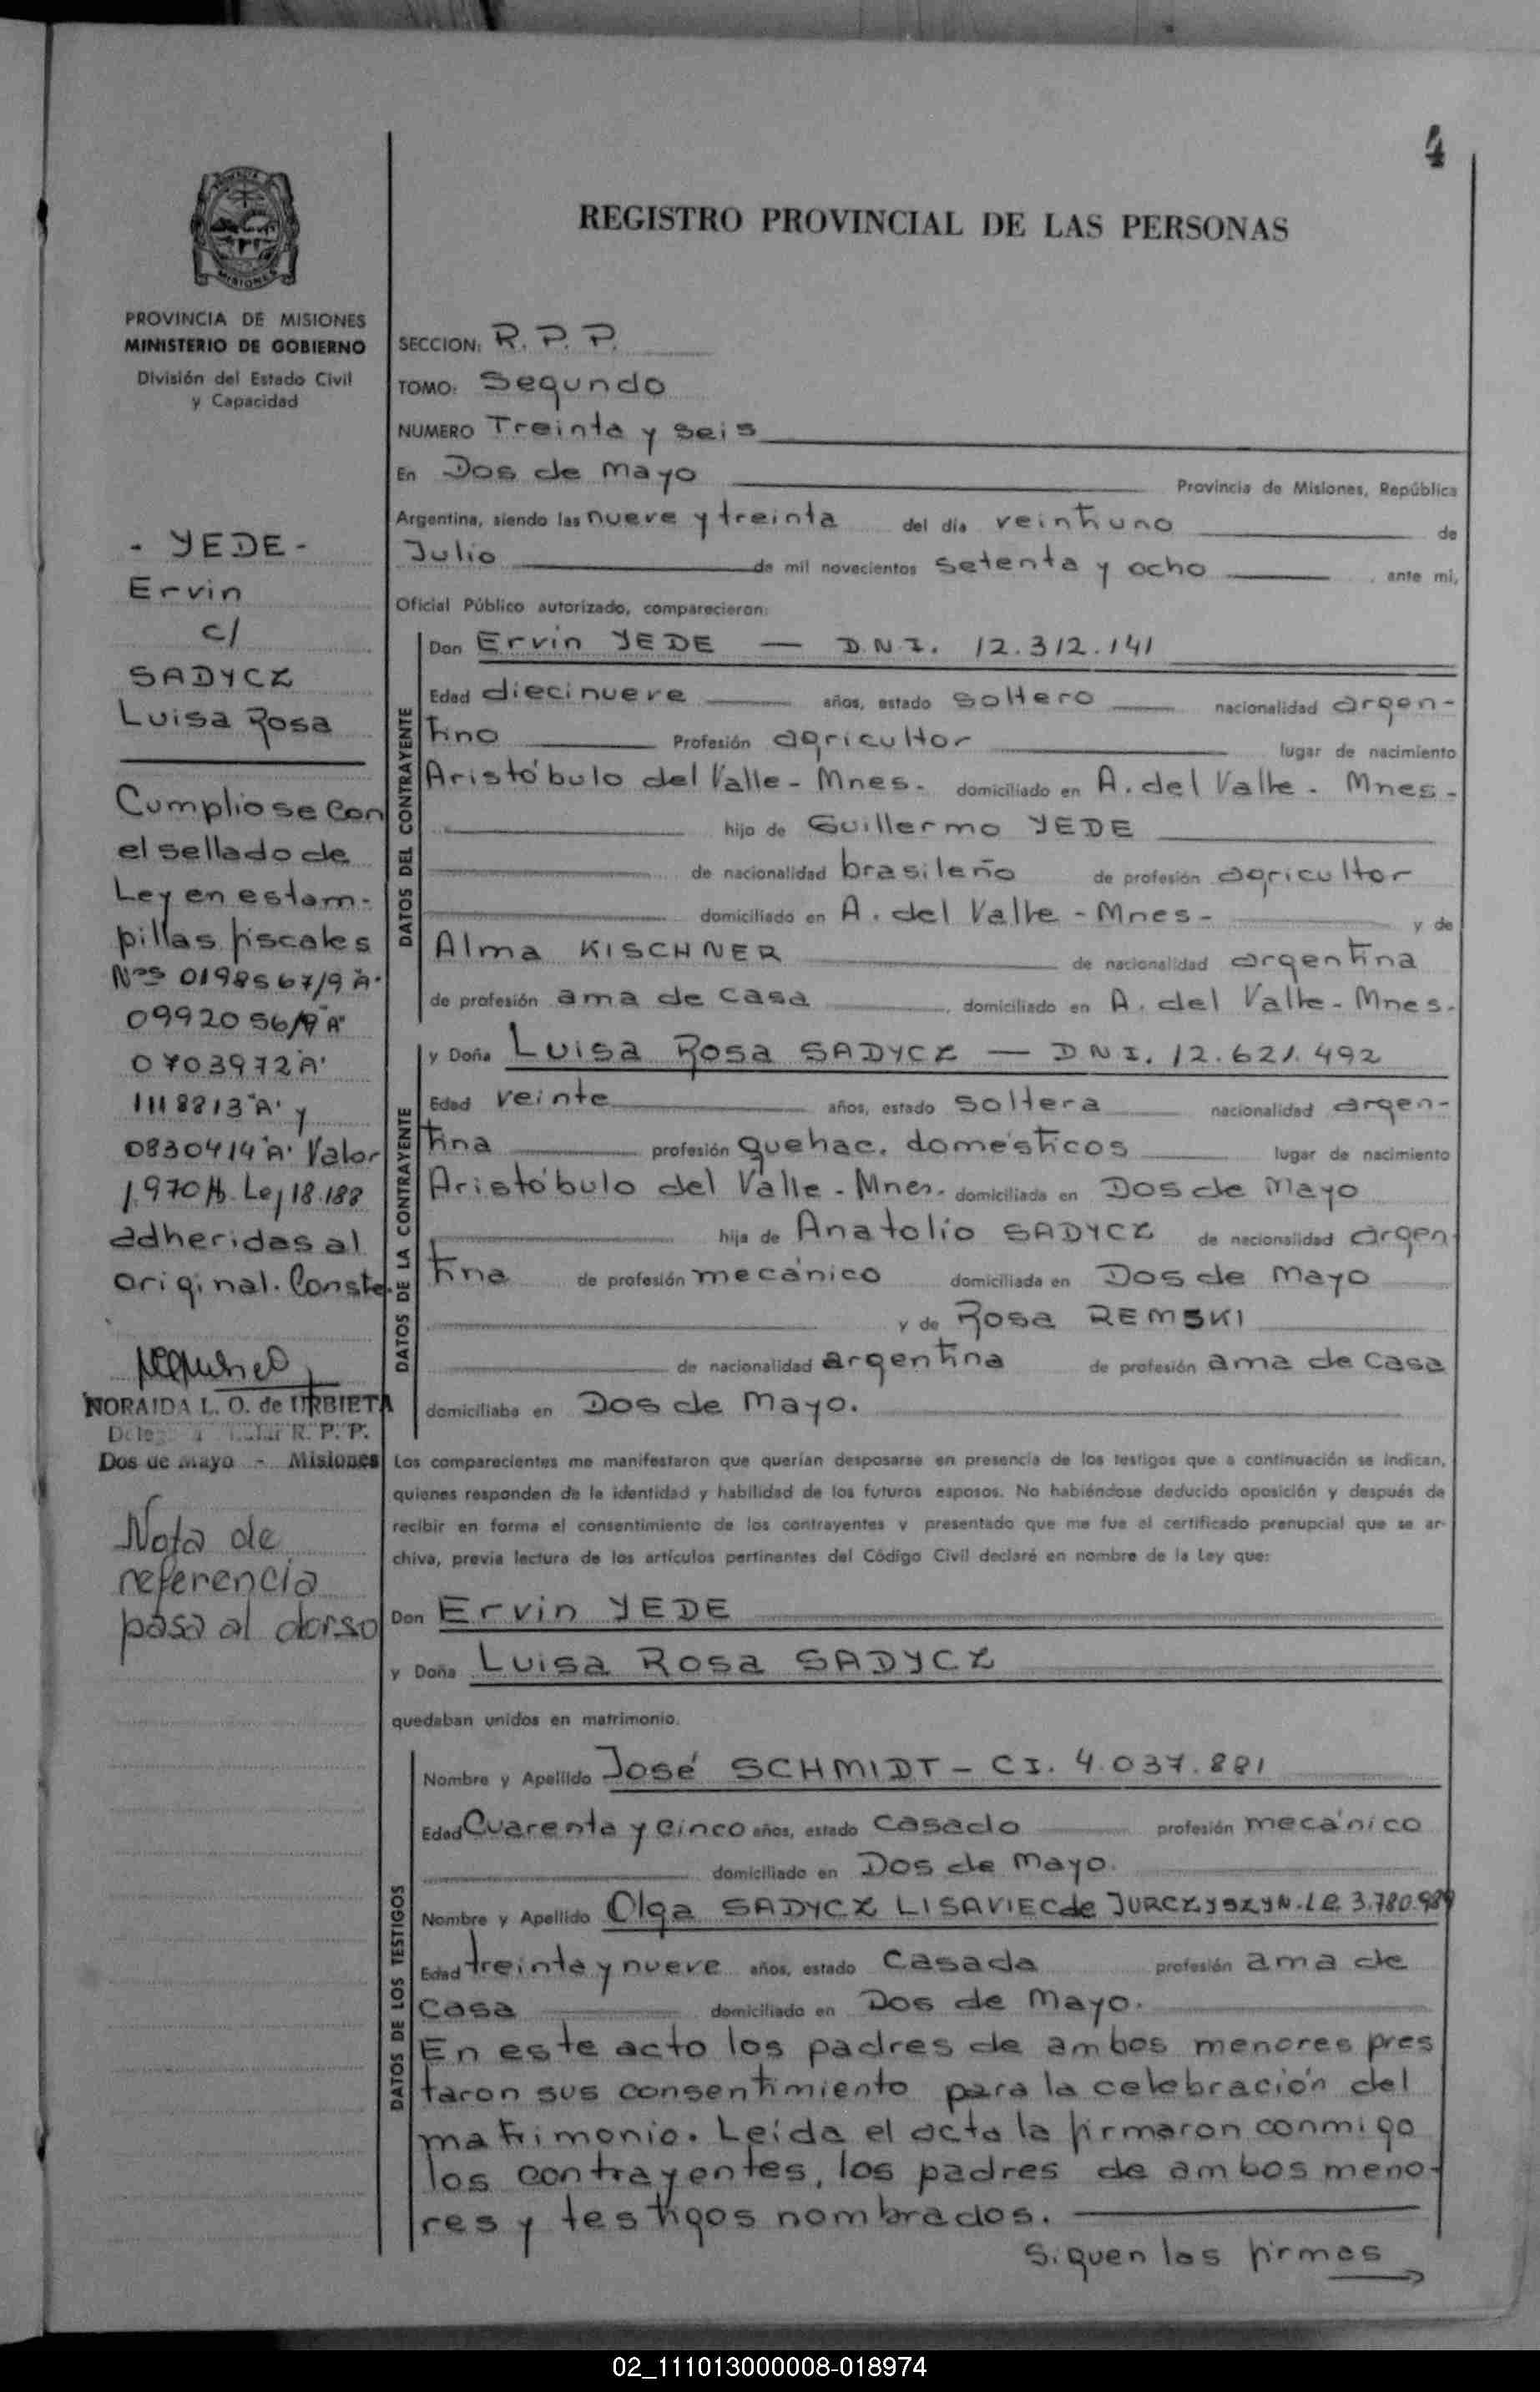 4
REGISTRO PROVINCIAL DE LAS PERSONAS
MISIONES
PROVINCIA DE MISIONES
MINISTERIO DE GOBIERNO
División del Estado Civil
y Capacidad
- YEDE -
Ervin
c/
SADYCZ
Luisa Rosa
Cumpliose con
el sellado de
Ley en estam-
pillas fiscales
Nos 0198567/9 "A"
0992056/9 "A"
0703972 "A"
1118813 "A" y
0830414 "A" Valor
1,970 Ley 18.188
adheridas al
original. Conste.
NORAIDA L. O. de URBIETA
R. P. P.
Dos de Mayo - Misiones
Nota de
referencia
pasa al dorso
SECCION: R. P. P.
TOMO: Segundo
NUMERO Treinta y seis
En Dos de Mayo Provincia de Misiones, República
Argentina, siendo las nueve y treinta del día veintiuno de
Julio de mil novecientos setenta y ocho, ante mi,
Oficial Público autorizado, comparecieron:
DATOS DEL CONTRAYENTE
Don Ervin YEDE — D.N.I. 12.312.141
Edad diecinueve años, estado soltero nacionalidad argen-
tino Profesión agricultor lugar de nacimiento
Aristóbulo del Valle - Mnes. domiciliado en A. del Valle - Mnes -
hijo de Guillermo YEDE
de nacionalidad brasileño de profesión agricultor
domiciliado en A. del Valle - Mnes - y de
Alma KISCHNER de nacionalidad argentina
de profesión ama de casa, domiciliado en A. del Valle - Mnes.
DATOS DE LA CONTRAYENTE
y Doña Luisa Rosa SADYCZ — DNI. 12.621.492
Edad veinte años, estado soltera nacionalidad argen-
tina profesión quehac. domésticos lugar de nacimiento
Aristóbulo del Valle - Mnes. domiciliada en Dos de Mayo
hija de Anatolio SADYCZ de nacionalidad argen-
tina de profesión mecánico domiciliada en Dos de Mayo
y de Rosa REMSKI
de nacionalidad argentina de profesión ama de casa
domiciliaba en Dos de Mayo.
Los comparecientes me manifestaron que querían desposarse en presencia de los testigos que a continuación se indican,
quienes responden de la identidad y habilidad de los futuros esposos. No habiéndose deducido oposición y después de
recibir en forma el consentimiento de los contrayentes y presentado que me fue el certificado prenupcial que se ar-
chiva, previa lectura de los artículos pertinentes del Código Civil declaré en nombre de la Ley que:
Don Ervin YEDE
y Doña Luisa Rosa SADYCZ
quedaban unidos en matrimonio.
DATOS DE LOS TESTIGOS
Nombre y Apellido José SCHMIDT - CI. 4.037.881
Edad Cuarenta y cinco años, estado casado profesión mecánico
domiciliado en Dos de Mayo.
Nombre y Apellido Olga SADYCZ LISAVIEC de JURCZYSZYN. LC 3.780.989
Edad treinta y nueve años, estado casada profesión ama de
casa domiciliado en Dos de Mayo.
En este acto los padres de ambos menores pres
taron sus consentimiento para la celebración del
matrimonio. Leída el acta la firmaron conmigo
los contrayentes, los padres de ambos meno-
res y testigos nombrados.
Siguen las firmas
02_111013000008-018974